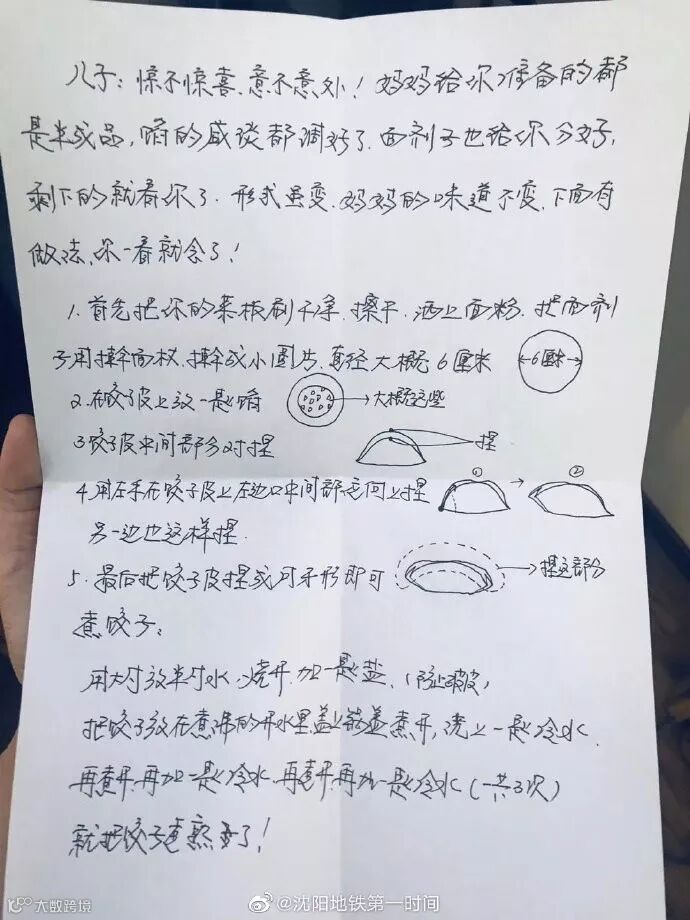 儿子：惊不惊喜、意不意外！妈妈给你准备的都
是半成品，馅的咸淡都调好了、面剂子也给你分好，
剩下的就看你了．形式虽变、妈妈的味道不变、下面有
做法、你一看就会了！
1．首先把你的菜板刷干净、擦干．洒上面粉．把面剂
子用擀面杖、擀成小圆片、直径大概6厘米
6厘米
2．在饺子皮上放一匙馅
大概这些
3 饺子皮中间部分对捏
捏
4．用左手在饺子皮上左边口中间部 向上捏
① ②
另一边也这样捏．
5．最后把饺子皮捏成 牙形即可
捏这部分
煮饺子：
用大 放半 水、烧开、加一匙盐、（防止破皮）
把饺子放在煮沸的开水里盖上 盖煮开，浇上一匙冷水．
再煮开、再加一匙冷水、再煮开再加一匙冷水（一共3次）
就把饺子煮熟 了！
大数跨境
@沈阳地铁第一时间